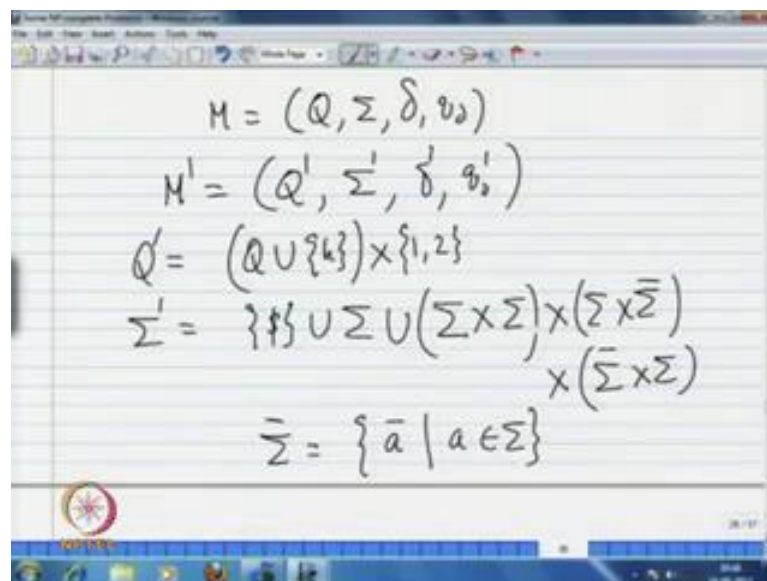 M = (Q, Σ, δ, q₀)
M' = (Q', Σ', δ', q₀')
Q' = (Q ∪ {h}) × {1,2}
Σ' = {$} ∪ Σ ∪ (Σ × Σ) × (Σ × Σ̄)
× (Σ̄ × Σ)
Σ̄ = {ā | a ∈ Σ}
NPTEL